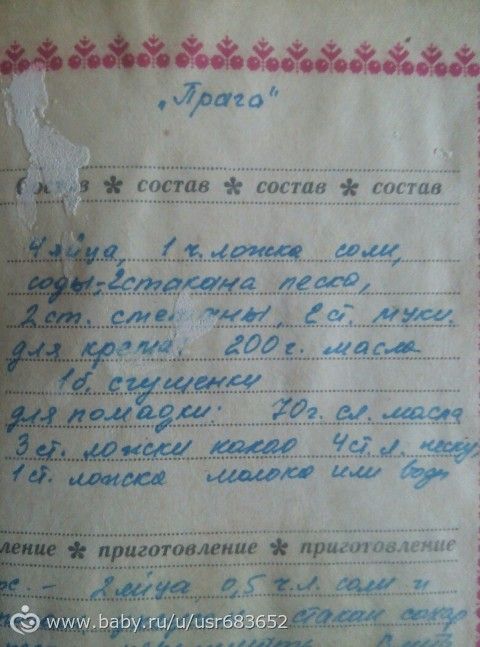 „Прага"
состав ✻ состав ✻ состав ✻ состав
4 яйца, 1 ч. ложка соли,
соды, 2 стакана песка,
2 ст. сметаны, 2 ст. муки.
для крема: 200 г. масла
1 б. сгущенки
для помадки: 70 г. сл. масла
3 ст. ложки какао 4 ст. л. песку,
1 ст. ложка молока или воды
ление ✻ приготовление ✻ приготовление
- 2 яйца, 0,5 ч.л. соли и
стакан сахар
www.baby.ru/u/usr683652